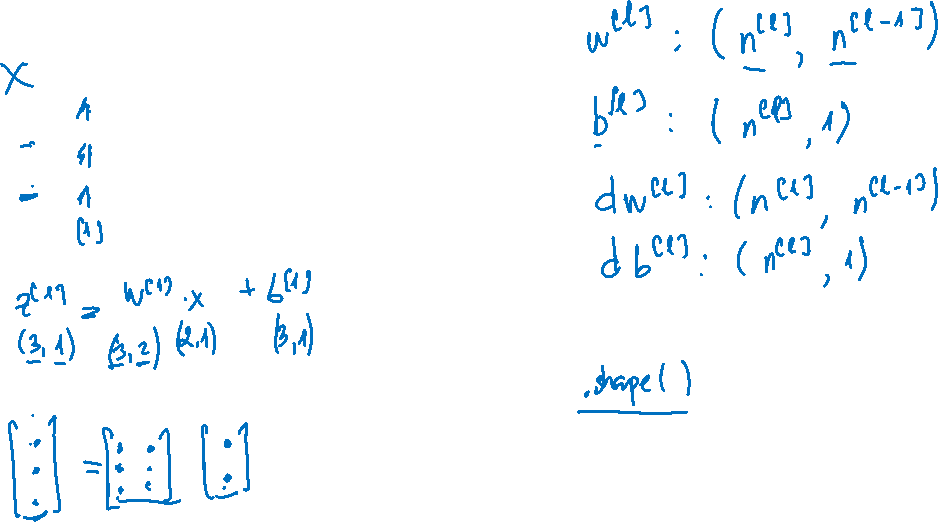 X
1
1
[1]
z^[1] = w^[1] · x + b^[1]
(3, 1) (3, 2) (2, 1) (3, 1)
=
w^[l] : (n^[l], n^[l-1])
b^[l] : (n^[l], 1)
dw^[l] : (n^[l], n^[l-1])
db^[l] : (n^[l], 1)
.shape()